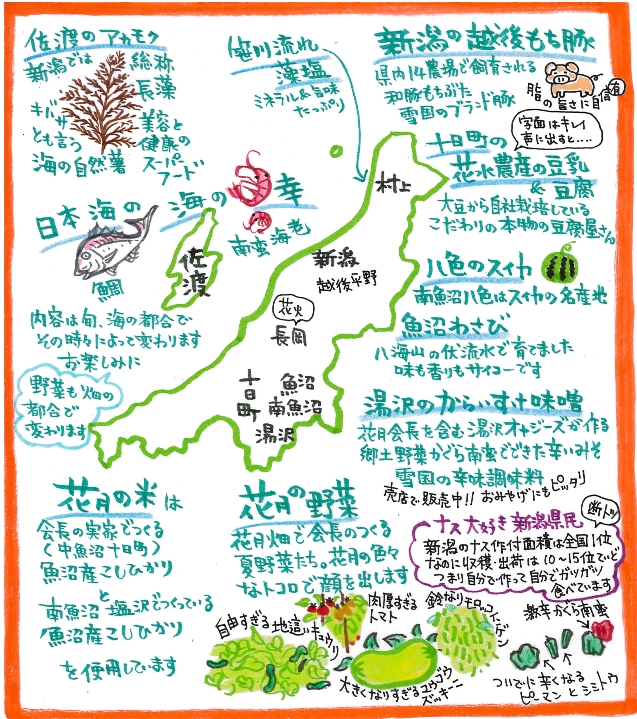 佐渡のアカモク
新潟では
総称
長藻
ギバサ
とも言う
海の自然薯
美容と
健康の
スーパー
フード
笹川流れ
藻塩
ミネラル&旨味
たっぷり
新潟の越後もち豚
県内14農場で飼育される
和豚もちぶた
雪国のブランド豚
脂の旨さに自信有
字面はキレイ
声に出すと….
十日町の
花水農産の豆乳
&豆腐
大豆から自社栽培している
こだわりの本物の豆腐屋さん
日本海の
海の幸
鯛
南蛮海老
内容は旬、海の都合で
その時々によって変わります
お楽しみに
野菜も畑の
都合で
変わります
村上
佐渡
新潟
越後平野
花火
長岡
十日町
魚沼
南魚沼
湯沢
八色のスイカ
南魚沼八色はスイカの名産地
魚沼わさび
八海山の伏流水で育てました
味も香りもサイコーです
湯沢のからいすけ味噌
花月会長を含む湯沢オヤジーズが作る
郷土野菜かぐら南蛮でできた辛いみそ
雪国の辛味調味料
売店で販売中!! おみやげにもピッタリ
花月の米は
会長の実家でつくる
(中魚沼十日町)
魚沼産こしひかり
と
南魚沼 塩沢でつくっている
魚沼産こしひかり
を使用しています
花月の野菜
花月畑で会長のつくる
夏野菜たち。花月の色々
なトコロで顔を出します
ナス大好き新潟県民
断トツ
新潟のナス作付面積は全国1位
なのに収穫・出荷は10〜15位ていど
つまり自分で作って自分でガツガツ
食べています
自由すぎる地這いキュウリ
肉厚すぎる
トマト
鈴なりモロッコインゲン
大きくなりすぎるコウコウ
ズッキーニ
激辛かぐら南蛮
ついでに辛くなる
ピーマンとシシトウ